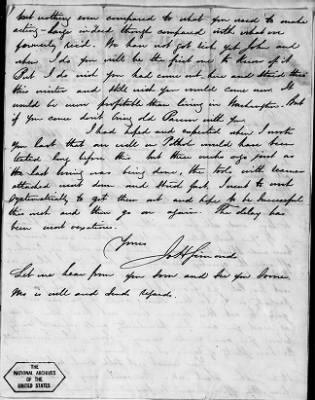 but nothing even compared to what you used to make
acting - large indeed though compared with what we
formerly rec'd. We have not got rich yet John and
when I do you will be the first one to know of it.
But I do wish you had come out here and staid
this winter and still wish you would come now. It
would be more profitable than living in Washington. But
if you come don't bring old with you.
I had hoped and expected when I wrote
you last that our well on Pithole would have been
tested long before this but three weeks ago just as
the last boring was being done, the tools with reamer
attached went down and stuck fast, I went to work
systematically to get them out and hope to be successful
this week and then go on again. The delay has
been most vexatious.
Yours
Jos H Simonds
Let me hear from you soon and see you sooner.
Mrs is well and sends regards.
THE
NATIONAL ARCHIVES
OF THE
UNITED STATES